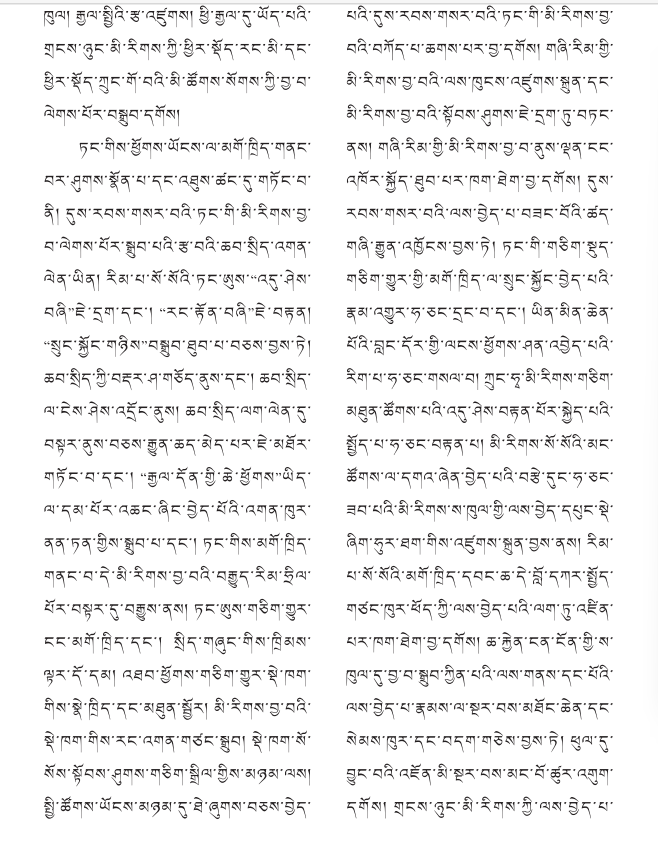 ཁུལ། རྒྱལ་སྤྱིའི་རྩ་འཛུགས། ཕྱི་རྒྱལ་དུ་ཡོད་པའི་
གྲངས་ཉུང་མི་རིགས་ཀྱི་ཕྱིར་སྡོད་རང་མི་དང་
ཕྱིར་སྡོད་ཀྲུང་གོ་བའི་མི་ཚོགས་སོགས་ཀྱི་བྱ་བ་
ལེགས་པོར་བསྒྲུབ་དགོས།
ཏང་གིས་ཕྱོགས་ཡོངས་ལ་མགོ་ཁྲིད་གནང་
བར་ཤུགས་སྣོན་པ་དང་འཐུས་ཚང་དུ་གཏོང་བ་
ནི། དུས་རབས་གསར་བའི་ཏང་གི་མི་རིགས་བྱ་
བ་ལེགས་པོར་སྒྲུབ་པའི་རྩ་བའི་ཆབ་སྲིད་འགན་
ལེན་ཡིན། རིམ་པ་སོ་སོའི་ཏང་ཨུས་“འདུ་ཤེས་
བཞི”ཇེ་དྲག་དང་། “རང་རྟོན་བཞི”ཇེ་བརྟན།
“སྲུང་སྐྱོང་གཉིས”བསྒྲུབ་ཐུབ་པ་བཅས་བྱས་ཏེ།
ཆབ་སྲིད་ཀྱི་བརྡར་ཤ་གཅོད་ནུས་དང་། ཆབ་སྲིད་
ལ་ངེས་ཤེས་འདྲོང་ནུས། ཆབ་སྲིད་ལག་ལེན་དུ་
བསྟར་ནུས་བཅས་རྒྱུན་ཆད་མེད་པར་ཇེ་མཐོར་
གཏོང་བ་དང་། “རྒྱལ་དོན་གྱི་ཆེ་ཕྱོགས”ཡིད་
ལ་དམ་པོར་འཆང་ཞིང་བྱེད་པོའི་འགན་ཁུར་
ནན་ཏན་གྱིས་སྒྲུབ་པ་དང་། ཏང་གིས་མགོ་ཁྲིད་
གནང་བ་དེ་མི་རིགས་བྱ་བའི་བརྒྱུད་རིམ་ཧྲིལ་
པོར་བསྟར་དུ་བརྒྱུས་ནས། ཏང་ཨུས་གཅིག་གྱུར་
ངང་མགོ་ཁྲིད་དང་། སྲིད་གཞུང་གིས་ཁྲིམས་
ལྟར་དོ་དམ། འཐབ་ཕྱོགས་གཅིག་གྱུར་སྡེ་ཁག་
གིས་སྣེ་ཁྲིད་དང་མཐུན་སྦྱོར། མི་རིགས་བྱ་བའི་
སྡེ་ཁག་གིས་རང་འགན་གཙང་སྒྲུབ། སྡེ་ཁག་སོ་
སོས་སྟོབས་ཤུགས་གཅིག་སྒྲིལ་གྱིས་མཉམ་ལས།
སྤྱི་ཚོགས་ཡོངས་མཉམ་དུ་ཐེ་ཞུགས་བཅས་བྱེད་
པའི་དུས་རབས་གསར་བའི་ཏང་གི་མི་རིགས་བྱ་
བའི་བཀོད་པ་ཆགས་པར་བྱ་དགོས། གཞི་རིམ་གྱི་
མི་རིགས་བྱ་བའི་ལས་ཁུངས་འཛུགས་སྐྲུན་དང་
མི་རིགས་བྱ་བའི་སྟོབས་ཤུགས་ཇེ་དྲག་ཏུ་བཏང་
ནས། གཞི་རིམ་གྱི་མི་རིགས་བྱ་བ་ནུས་ལྡན་ངང་
འཁོར་སྐྱོད་ཐུབ་པར་ཁག་ཐེག་བྱ་དགོས། དུས་
རབས་གསར་བའི་ལས་བྱེད་པ་བཟང་བོའི་ཚད་
གཞི་རྒྱུན་འཁྱོངས་བྱས་ཏེ། ཏང་གི་གཅིག་སྡུད་
གཅིག་གྱུར་གྱི་མགོ་ཁྲིད་ལ་སྲུང་སྐྱོང་བྱེད་པའི་
རྣམ་འགྱུར་ཧ་ཅང་དྲང་བ་དང་། ཡིན་མིན་ཆེན་
པོའི་བླང་དོར་གྱི་ལངས་ཕྱོགས་ཤན་འབྱེད་པའི་
རིག་པ་ཧ་ཅང་གསལ་བ། ཀྲུང་ཧྭ་མི་རིགས་གཅིག་
མཐུན་ཚོགས་པའི་འདུ་ཤེས་བརྟན་པོར་སྐྱེད་པའི་
སྤྱོད་པ་ཧ་ཅང་བརྟན་པ། མི་རིགས་སོ་སོའི་མང་
ཚོགས་ལ་དགའ་ཞེན་བྱེད་པའི་བརྩེ་དུང་ཧ་ཅང་
ཟབ་པའི་མི་རིགས་ས་ཁུལ་གྱི་ལས་བྱེད་དཔུང་སྡེ་
ཞིག་ཧུར་ཐག་གིས་འཛུགས་སྐྲུན་བྱས་ནས། རིམ་
པ་སོ་སོའི་མགོ་ཁྲིད་དབང་ཆ་དེ་བློ་དཀར་སྤྱོད་
གཙང་ཁུར་ཕོད་ཀྱི་ལས་བྱེད་པའི་ལག་ཏུ་འཛིན་
པར་ཁག་ཐེག་བྱ་དགོས། ཆ་རྐྱེན་ངན་ངོན་གྱི་ས་
ཁུལ་དུ་བྱ་བ་སྒྲུབ་ཀྱིན་པའི་ལས་གནས་དང་པོའི་
ལས་བྱེད་པ་རྣམས་ལ་སྔར་བས་མཐོང་ཆེན་དང་
སེམས་ཁུར་དང་བདག་གཅེས་བྱས་ཏེ། ཕུལ་དུ་
བྱུང་བའི་འཇོན་མི་སྔར་བས་མང་བོ་ཚུར་འགུག་
དགོས། གྲངས་ཉུང་མི་རིགས་ཀྱི་ལས་བྱེད་པ་